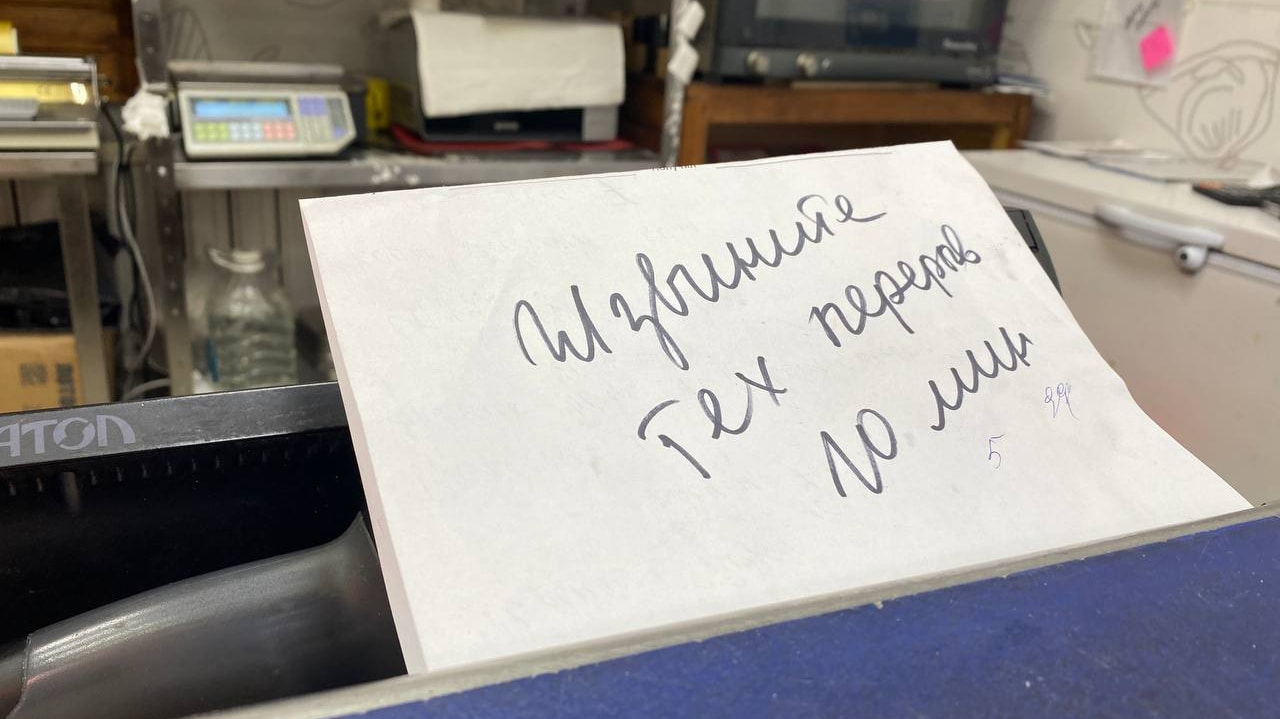 Извините
Тех перерыв
10 мин
5
АТОЛ